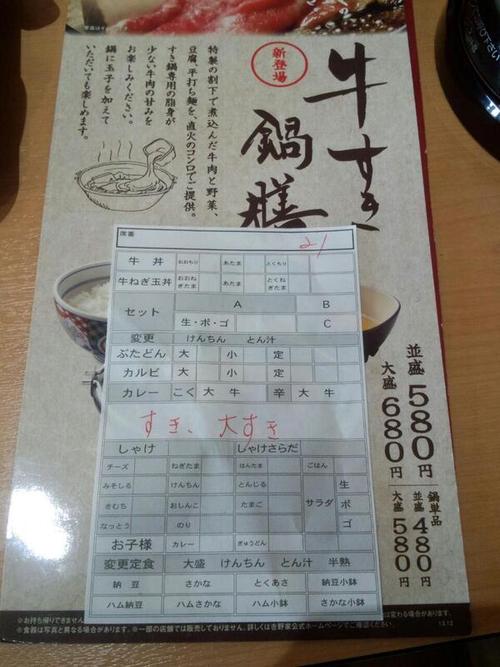 新登場
牛すき
鍋膳
特製の割下で煮込んだ牛肉と野菜、
豆腐、平打ち麺を、直火のコンロでご提供。
すき鍋専用の脂身が
少ない牛肉の甘みを
お楽しみください。
鍋に玉子を加えて
いただいても楽しめます。
並盛580円
大盛680円
鍋単品
並盛480円
大盛580円
席番
21
牛丼 おおもり あたま とくもり
牛ねぎ玉丼 おおねぎたま あたま とくねぎたま
セット A B
生・ポ・ゴ C
変更 けんちん とん汁
ぶたどん 大 小 定
カルビ 大 小 定
カレー こく 大 牛 辛 大 牛
すき、大すき
しゃけ しゃけさらだ
チーズ ねぎたま はんたま ごはん
みそしる けんちん とんじる サラダ 生
きむち おしんこ たまご ポ
なっとう のり ゴ
お子様 カレー ぎゅうどん
変更定食 大盛 けんちん とん汁 半熟
納豆 さかな とくあさ 納豆小鉢
ハム納豆 ハムさかな ハム小鉢 さかな小鉢
※食器は写真と異なる場合があります。※一部の店舗では販売しておりません。詳しくは吉野家公式ホームページでご確認ください。
13.12